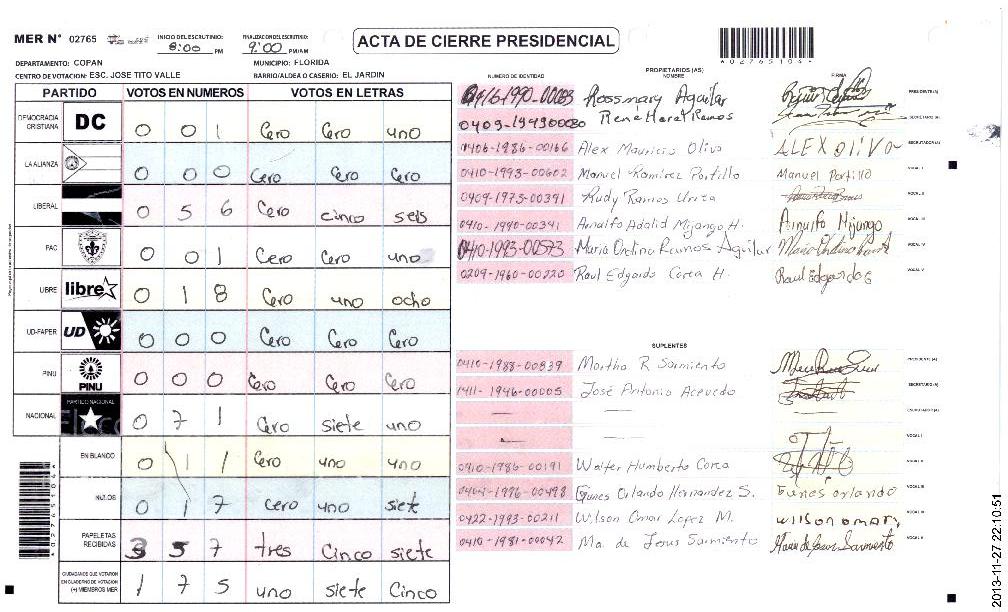 MER Nº 02765 INICIO DEL ESCRUTINIO: 8:00 PM FINALIZACION DEL ESCRUTINIO: 9:00 PM/AM ACTA DE CIERRE PRESIDENCIAL
DEPARTAMENTO: COPAN MUNICIPIO: FLORIDA
CENTRO DE VOTACION: ESC. JOSE TITO VALLE BARRIO/ALDEA O CASERIO: EL JARDIN
PARTIDO VOTOS EN NUMEROS VOTOS EN LETRAS
DEMOCRACIA CRISTIANA DC 0 0 1 Cero Cero uno
LA ALIANZA 0 0 0 Cero Cero Cero
LIBERAL 0 5 6 Cero cinco seis
PAC 0 0 1 Cero Cero uno
LIBRE libre 0 1 8 Cero uno ocho
UD-FAPER UD 0 0 0 Cero Cero Cero
PINU PINU 0 0 0 Cero Cero Cero
NACIONAL PARTIDO NACIONAL 0 7 1 Cero siete uno
EN BLANCO 0 1 1 Cero uno uno
NULOS 0 1 7 Cero uno siete
PAPELETAS RECIBIDAS 3 5 7 tres Cinco siete
CIUDADANOS QUE VOTARON EN CUADERNO DE VOTACION (+) MIEMBROS MER 1 7 5 uno siete Cinco
PROPIETARIOS (AS)
NUMERO DE IDENTIDAD NOMBRE FIRMA
Rossmary Aguilar PRESIDENTE(A)
René Harol Ramos SECRETARIO(A)
0406-1986-00166 Alex Mauricio Oliva ALEX OLIVA ESCRUTADOR(A)
0410-1993-00602 Manuel Ramirez Portillo Manuel Portillo VOCAL I
0409-1975-00391 Rudy Ramos Urita VOCAL II
0410-1990-00341 Arnulfo Adalid Mijango H. Arnulfo Mijango VOCAL III
0410-1993-00573 Maria Ondina Ramos Aguilar VOCAL IV
0209-1960-00220 Raul Edgardo Corea H. Raul Edgardo C VOCAL V
SUPLENTES
0410-1988-00839 Martha R Sarmiento PRESIDENTE(A)
1411-1946-00005 José Antonio Acevedo SECRETARIO(A)
— — ESCRUTADOR(A)
— — VOCAL I
0410-1986-00191 Walter Humberto Corea VOCAL II
Funes Orlando Hernandez S. Funes orlando VOCAL III
0422-1993-00211 Wilson Omar Lopez M. wilson omar VOCAL IV
0410-1981-00042 Ma. de Jesus Sarmiento Maria de Jesus Sarmiento VOCAL V
A02765106A
A02765106A
2013-11-27 22:10:51